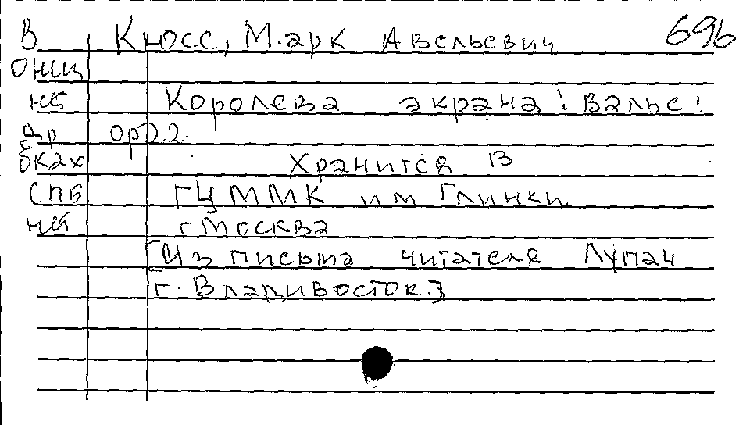 В Кносс, Марк Авельевич 696
ОНИЦ
нб Королева экрана! Вальс!
др ор.2.
бках Хранится в
СПБ ГЦММК им Глинки
нб г Москва
[Из письма читателя Лупач
г. Владивосток]